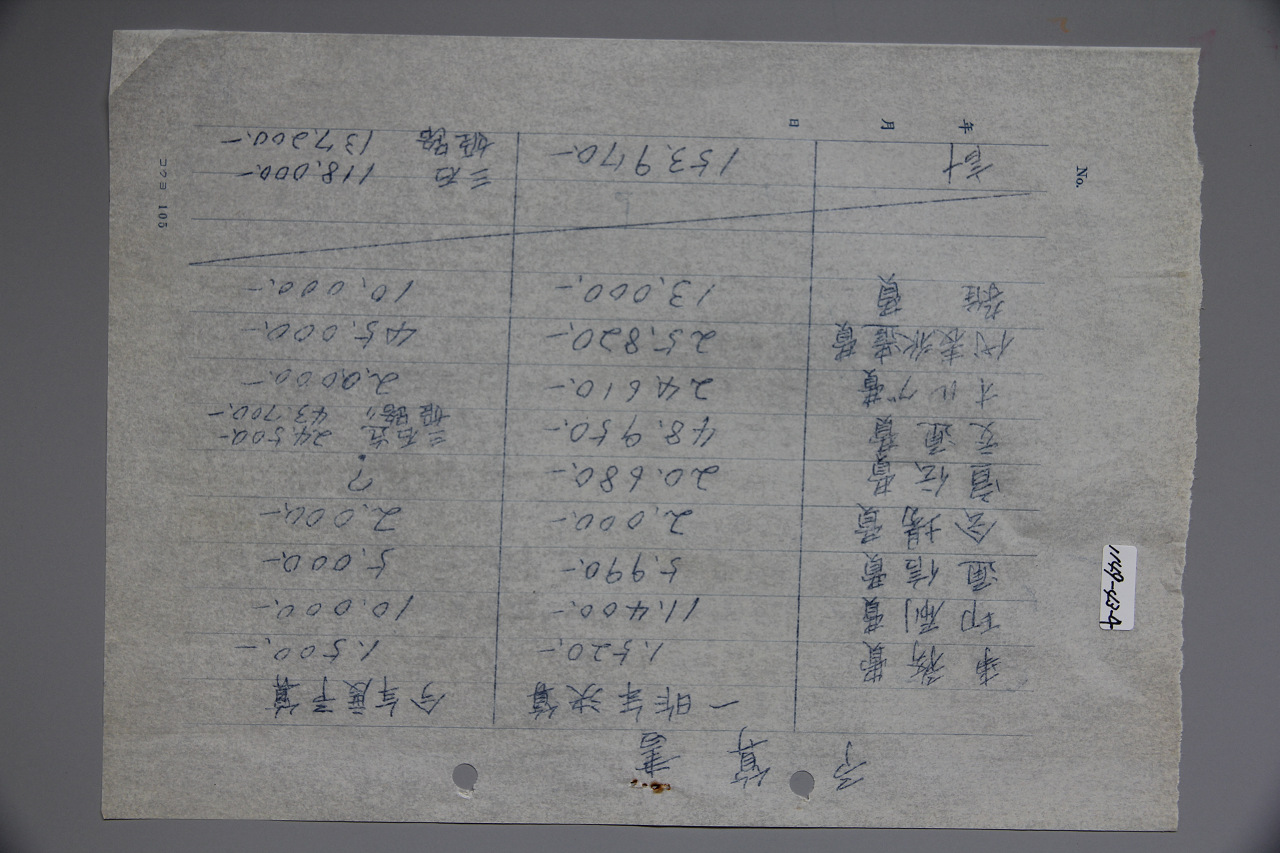 予算書
一昨年決算 今年度予算
事務費 1,520.- 1,500.-
印刷費 11,400.- 10,000.-
通信費 5,990.- 5,000.-
会場費 2,000.- 2,000.-
宣伝費 20,680.- ?
交通費 48,950.- 三石迄 24,500.-
姫路〃 43,700.-
オルグ費 24,610.- 20,000.-
代表派遣費 25,820.- 45,000.-
雑費 13,000.- 10,000.-
計 153,970.- 三石 118,000.-
姫路 137,200.-
年 月 日
No.
コクヨ 105